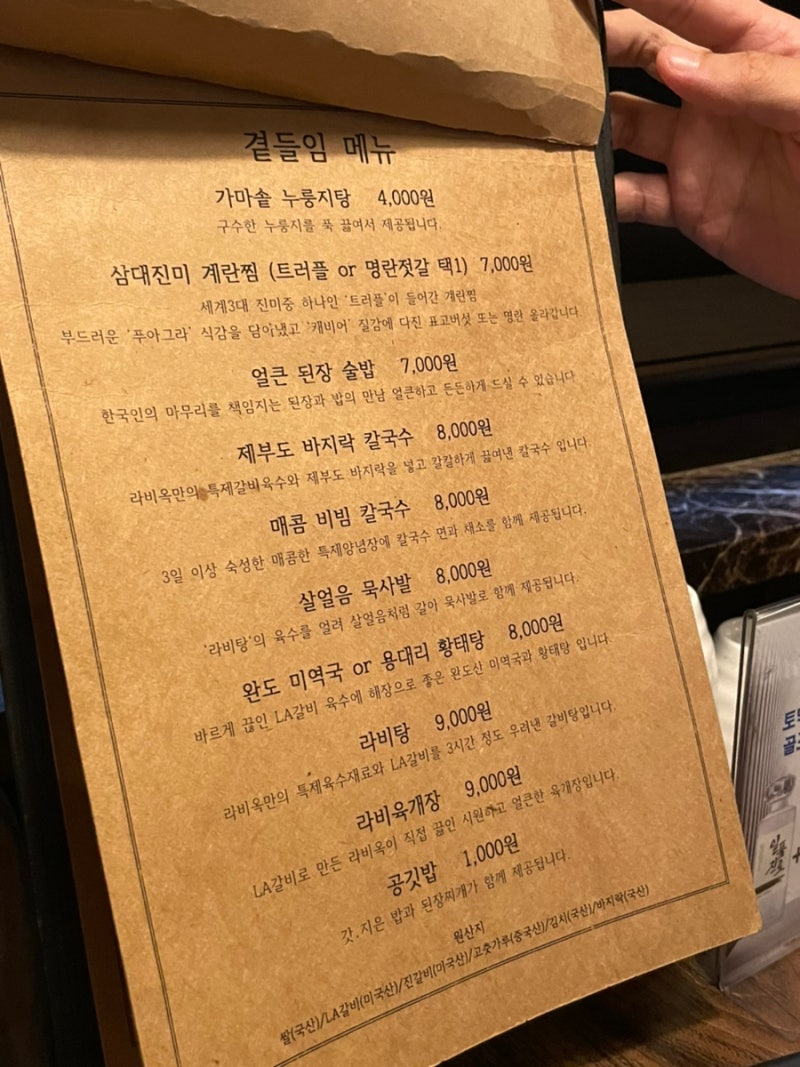 곁들임 메뉴
가마솥 누룽지탕 4,000원
구수한 누룽지를 푹 끓여서 제공됩니다.
삼대진미 계란찜 (트러플 or 명란젓갈 택1) 7,000원
세계3대 진미중 하나인 '트러플'이 들어간 계란찜
부드러운 '푸아그라' 식감을 담아냈고 '캐비어' 질감에 다진 표고버섯 또는 명란 올라갑니다.
얼큰 된장 술밥 7,000원
한국인의 마무리를 책임지는 된장과 밥의 만남 얼큰하고 든든하게 드실 수 있습니다
제부도 바지락 칼국수 8,000원
라비옥만의 특제갈비육수와 제부도 바지락을 넣고 칼칼하게 끓여낸 칼국수 입니다.
매콤 비빔 칼국수 8,000원
3일 이상 숙성한 매콤한 특제양념장에 칼국수 면과 채소를 함께 제공됩니다.
살얼음 묵사발 8,000원
'라비탕'의 육수를 얼려 살얼음처럼 갈아 묵사발로 함께 제공됩니다.
완도 미역국 or 용대리 황태탕 8,000원
바르게 끓인 LA갈비 육수에 해장으로 좋은 완도산 미역국과 황태탕 입니다.
라비탕 9,000원
라비옥만의 특제육수재료와 LA갈비를 3시간 정도 우려낸 갈비탕입니다.
라비육개장 9,000원
LA갈비로 만든 라비옥이 직접 끓인 시원하고 얼큰한 육개장입니다.
공깃밥 1,000원
갓.지은 밥과 된장찌개가 함께 제공됩니다.
원산지
쌀(국산)/LA갈비(미국산)/진갈비(미국산)/고춧가루(중국산)/김치(국산)/바지락(국산)